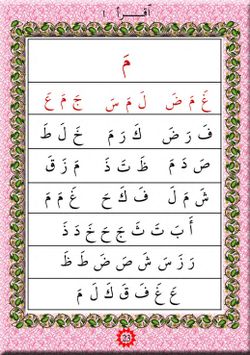 أقرأ ١
مَ
غَ مَ ضَ لَ مَ سَ جَ مَ عَ
فَ رَ ضَ كَ رَ مَ خَ لَ طَ
صَ دَ مَ ظَ تَ ذَ مَ زَ قَ
شَ مَ لَ فَ كَ حَ غَ مَ مَ
أَ بَ تَ ثَ جَ حَ خَ دَ ذَ
رَ زَ سَ شَ صَ ضَ طَ ظَ
عَ غَ فَ قَ كَ لَ مَ
23